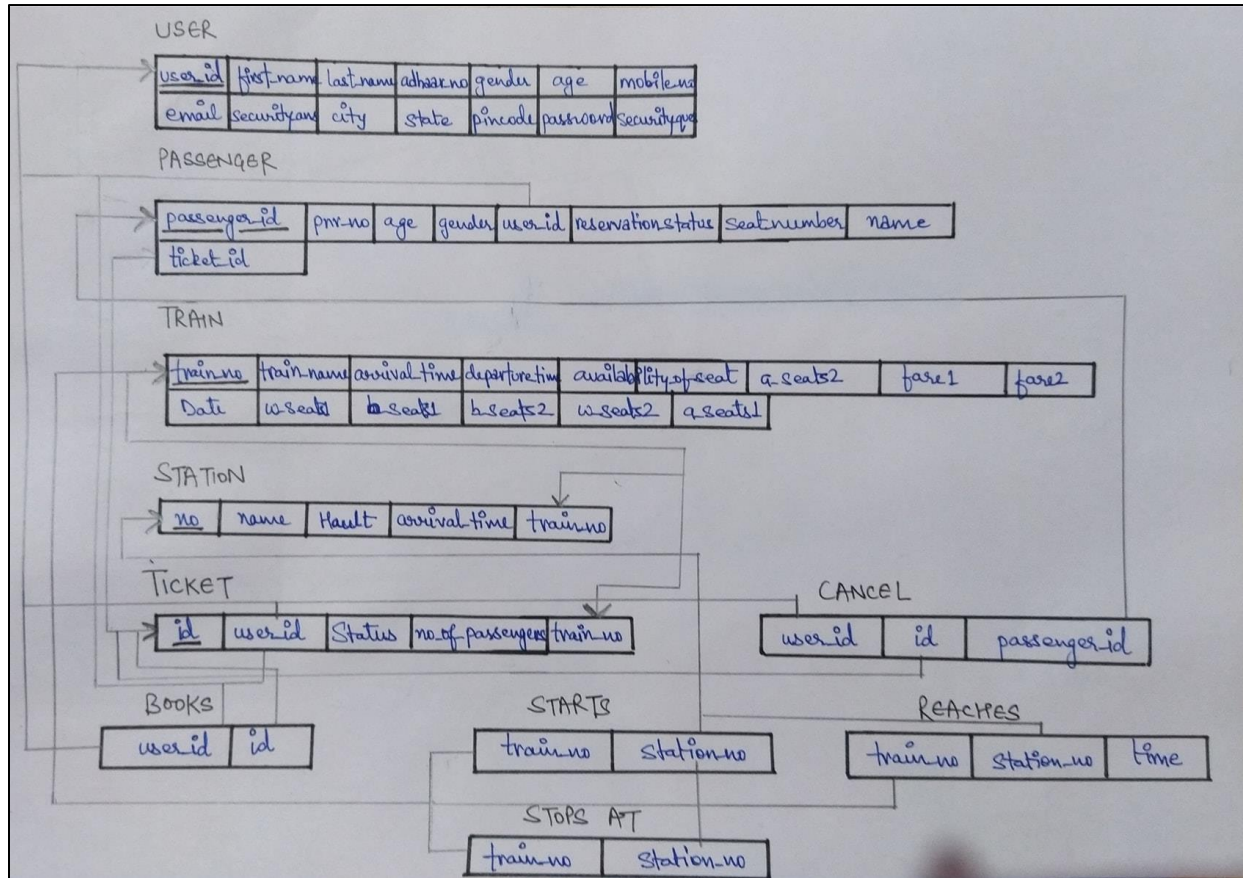 USER
user_id first_name last_name adhaar_no gender age mobile_no
email securityans city state pincode password securityque
PASSENGER
passenger_id pnr_no age gender user_id reservationstatus seatnumber name
ticket_id
TRAIN
train_no train_name arrival_time departuretim availability_of_seat a_seats2 fare1 fare2
Date w_seats1 b_seats1 b_seats2 w_seats2 a_seats1
STATION
no name Hault arrival_time train_no
TICKET
id user_id Status no_of_passengers train_no
CANCEL
user_id id passenger_id
BOOKS
user_id id
STARTS
train_no station_no
REACHES
train_no station_no time
STOPS AT
train_no station_no